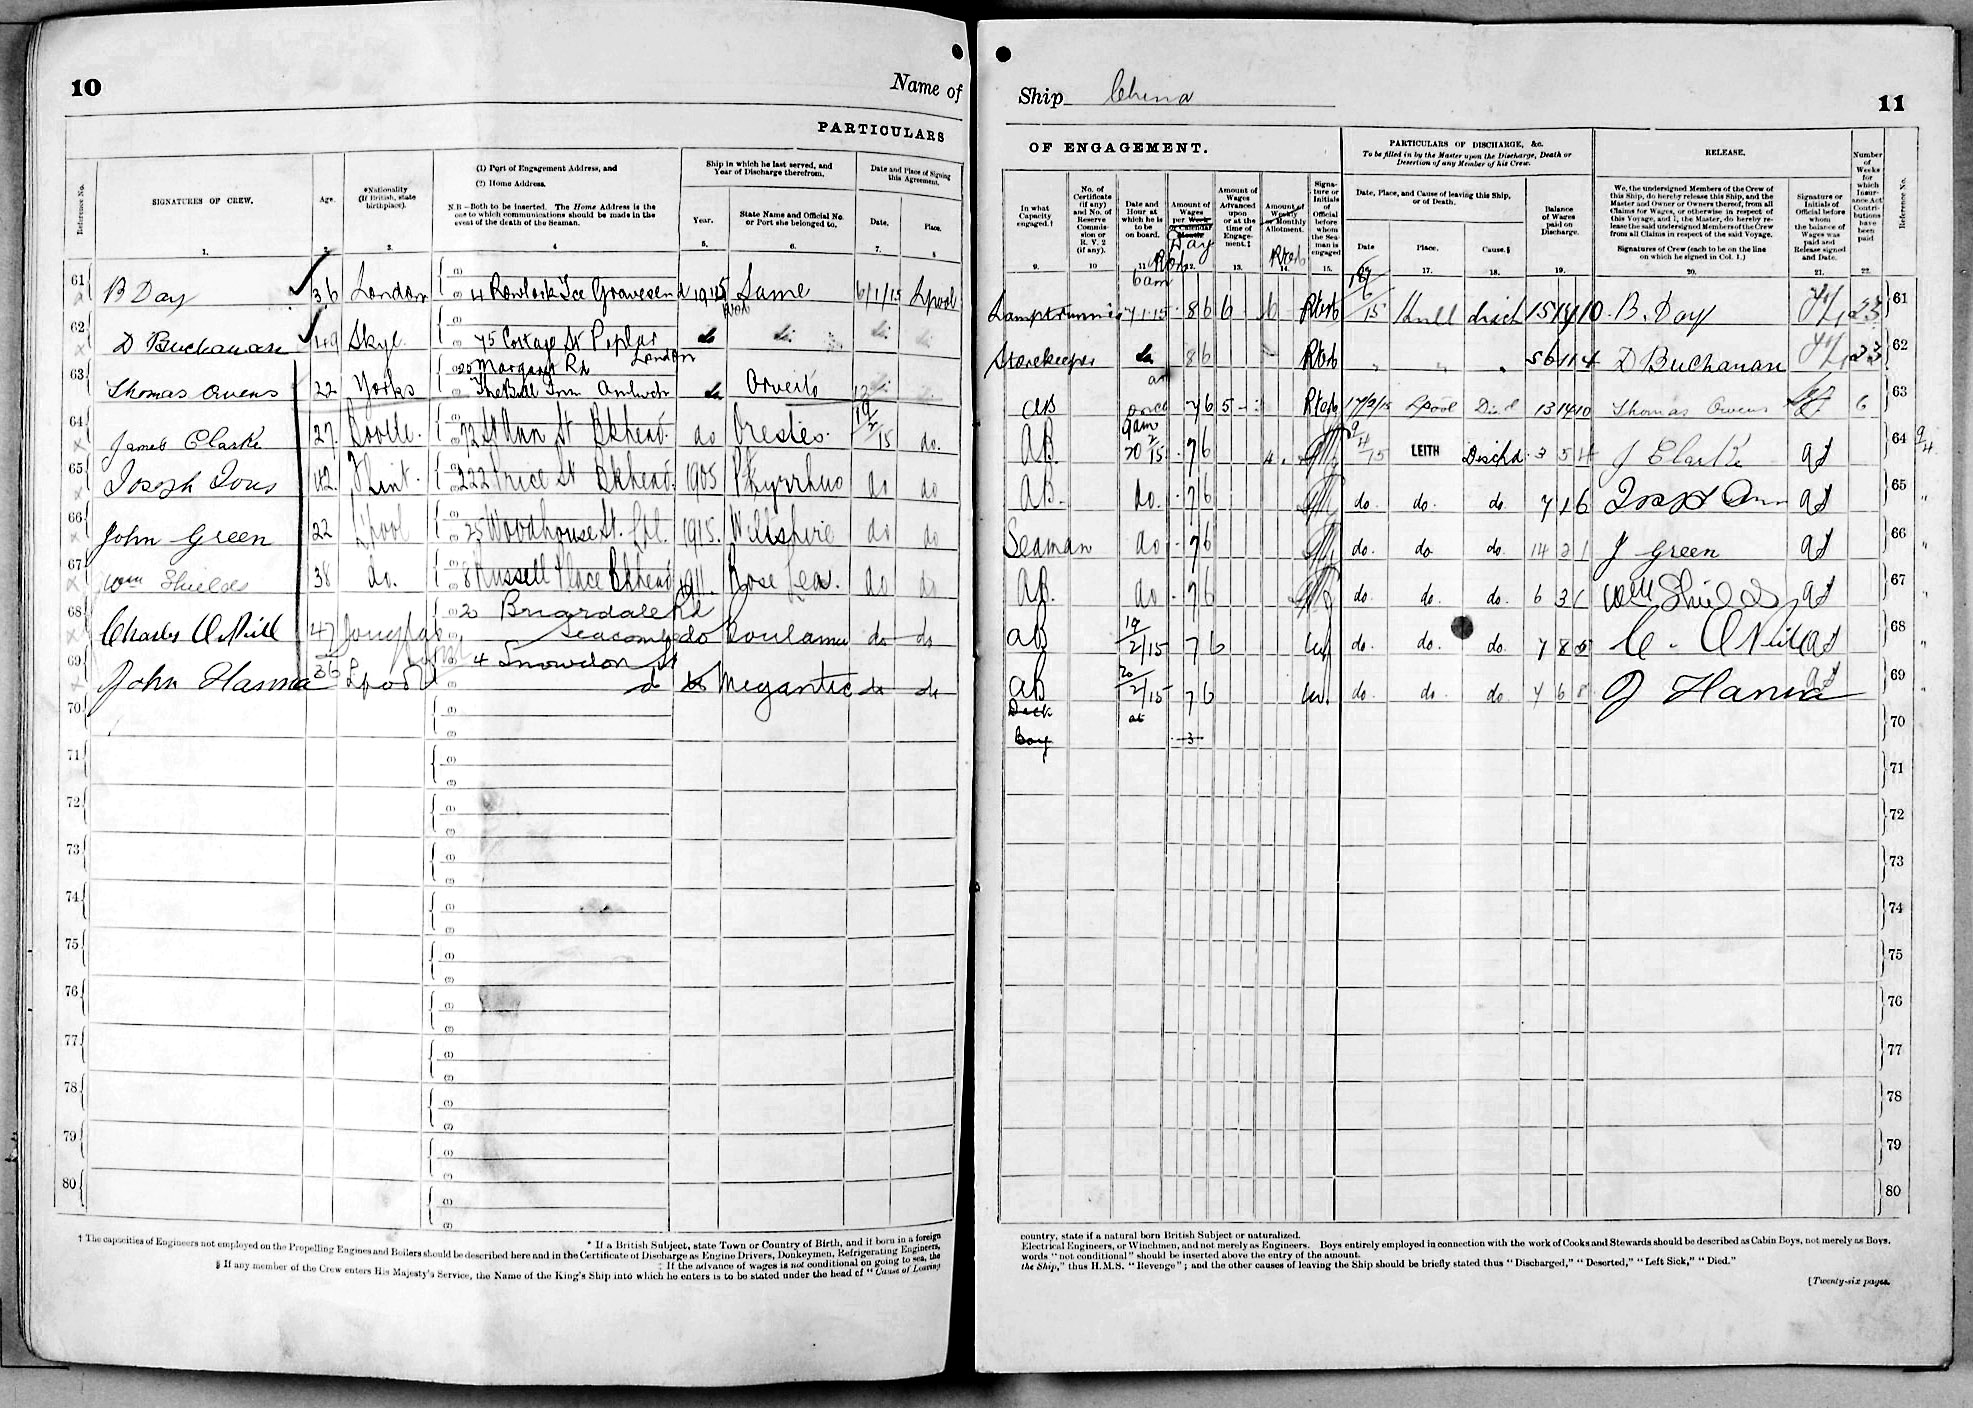 10
Name of
PARTICULARS
Reference No.
SIGNATURES OF CREW.
1.
Age.
2.
*Nationality
(If British, state
birthplace).
3.
(1) Port of Engagement Address, and
(2) Home Address.
N.B.—Both to be inserted. The Home Address is the
one to which communications should be made in the
event of the death of the Seaman.
4
Ship in which he last served, and
Year of Discharge therefrom.
Year.
5.
State Name and Official No.
or Port she belonged to.
6.
Date and Place of Signing
this Agreement.
Date.
7.
Place.
8
61 B Day 36 London 4 Rowlock Tce Gravesend 1915 Same 6/1/15 Lpool
62 D Buchanan 49 Skye 75 Cottage St Poplar London do do do do
63 Thomas Owens 22 Yorks Margaret Rd
The Bull Inn Amlwch do
64 James Clarke 27. Bootle. 72 St Ann St Bkhead. do Orestes. 19/2/15 do.
65 Joseph 42. Flint. 222 Price St Bkhead. 1905 Phyrrhus do do
66 John Green 22 L'pool 25 Woodhouse St. Lpl. 1915. Wiltshire do do
67 Wm Shields 38 do. 8 Russell Place Bkhead 1911. Rose Lea. do do
68 Charles O'Neill 47 Douglas 20 Briardale Rd
Seacombe do do do
69 John Hanna 36 Lpool 4 Snowdon St
do do Megantic do do
70
71
72
73
74
75
76
77
78
79
80
* If a British Subject, state Town or Country of Birth, and if born in a foreign
† The capacities of Engineers not employed on the Propelling Engines and Boilers should be described here and in the Certificate of Discharge as Engine Drivers, Donkeymen, Refrigerating Engineers,
‡ If the advance of wages is not conditional on going to sea, the
§ If any member of the Crew enters His Majesty's Service, the Name of the King's Ship into which he enters is to be stated under the head of "Cause of Leaving
Ship China
11
OF ENGAGEMENT.
In what
Capacity
engaged.†
9.
No. of
Certificate
(if any)
and No. of
Reserve
Commis-
sion or
R. V. 2
(if any).
10
Date and
Hour at
which he is
to be
on board.
11
Amount of
Wages
per Week
or Calendar
Month
Day
12.
Amount of
Wages
Advanced
upon
or at the
time of
Engage-
ment.‡
13.
Amount of
Weekly
or Monthly
Allotment.
14.
Signa-
ture or
Initials
of
Official
before
whom
the Sea-
man is
engaged
15.
PARTICULARS OF DISCHARGE, &c.
To be filled in by the Master upon the Discharge, Death or
Desertion of any Member of his Crew.
Date, Place, and Cause of leaving this Ship,
or of Death.
Date
Place.
17.
Cause.§
18.
Balance
of Wages
paid on
Discharge.
19.
RELEASE.
We, the undersigned Members of the Crew of
this Ship, do hereby release this Ship, and the
Master and Owner or Owners thereof, from all
Claims for Wages, or otherwise in respect of
this Voyage, and I, the Master, do hereby re-
lease the said undersigned Members of the Crew
from all Claims in respect of the said Voyage.
Signatures of Crew (each to be on the line
on which he signed in Col. 1.)
20.
Signature or
Initials of
Official before
whom
the balance of
Wages was
paid and
Release signed
and Date.
21.
Number
of
Weeks
for
which
Insur-
ance Act
Contri-
butions
have
been
paid
22.
Reference No.
6 am
Lamptrimmer 7-1-15 8 6 6 6 Hull disch 15 14 10 B. Day 23 61
Storekeeper do 8 6 56 11 4 D Buchanan 23 62
AB once 7 6 5 17/2/15 Lpool Died 13 14 10 Thomas Owens 6 63
9am
AB. 20/2/15 7 6 9/4/15 LEITH Dischd. 3 5 4 J Clarke 64 9/4
AB. do. 7 6 do. do. do. 7 1 6 65 "
Seaman do 7 6 do. do do. 14 2 1 J Green 66 "
AB. do 7 6 do. do. do. 6 3 1 Wm Shields 67 "
AB 19/2/15 7 6 do. do. do. 7 8 5 C. O'Neill 68 "
AB 20/2/15 7 6 do. do. do. 7 6 8 J Hanna 69 "
Deck at 70
Boy 3
71
72
73
74
75
76
77
78
79
80
country, state if a natural born British Subject or naturalized.
Electrical Engineers, or Winchmen, and not merely as Engineers. Boys entirely employed in connection with the work of Cooks and Stewards should be described as Cabin Boys, not merely as Boys.
words "not conditional" should be inserted above the entry of the amount.
the Ship," thus H.M.S. "Revenge"; and the other causes of leaving the Ship should be briefly stated thus "Discharged," "Deserted," "Left Sick," "Died."
[Twenty-six pages.